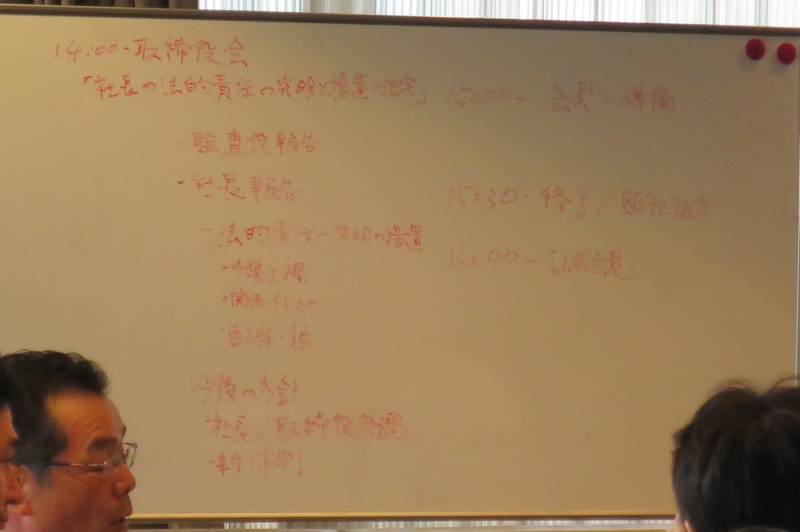 14:00・取締役会
「社長の法的責任の究明と措置の決定」
・監査役報告
・社長報告
－法的責任の究明の措置
配当・
今後の方針
社長/取締役処遇
・新体制
15:00－会見の準備
15:30・終了/販社組合
16:00－記者会見